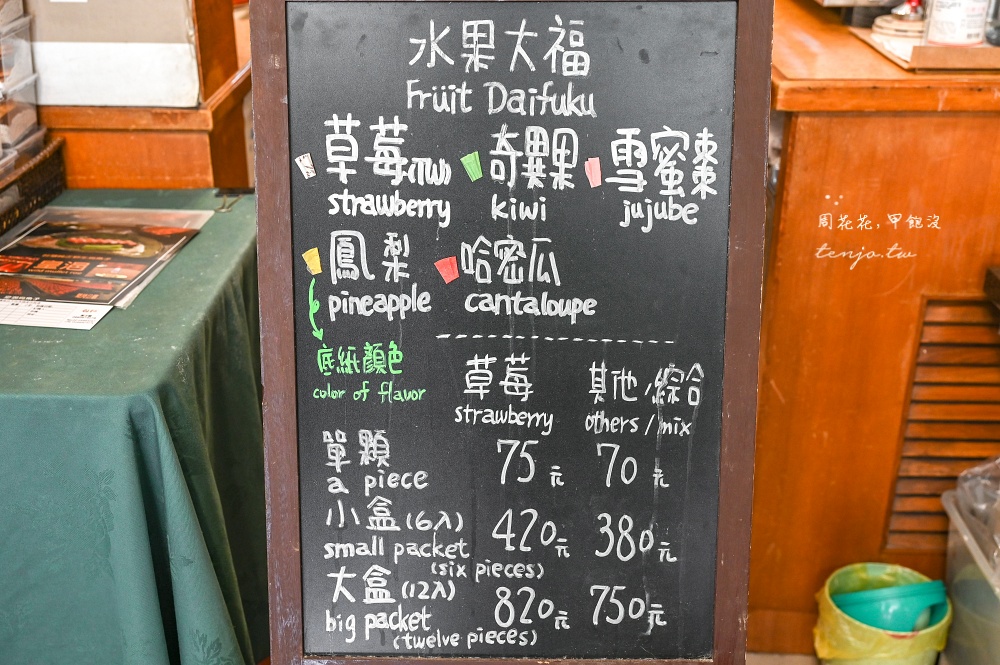 水果大福
Früit Daifuku
草莓(TW) 奇異果 雪蜜棗
strawberry kiwi jujube
鳳梨 哈密瓜
pineapple cantaloupe
底紙顏色
color of flavor
草莓 其他/綜合
strawberry others/mix
單顆 75元 70元
a piece
小盒(6入) 420元 380元
small packet
(six pieces)
大盒(12入) 820元 750元
big packet
(twelve pieces)
周花花,甲飽沒
tenjo.tw